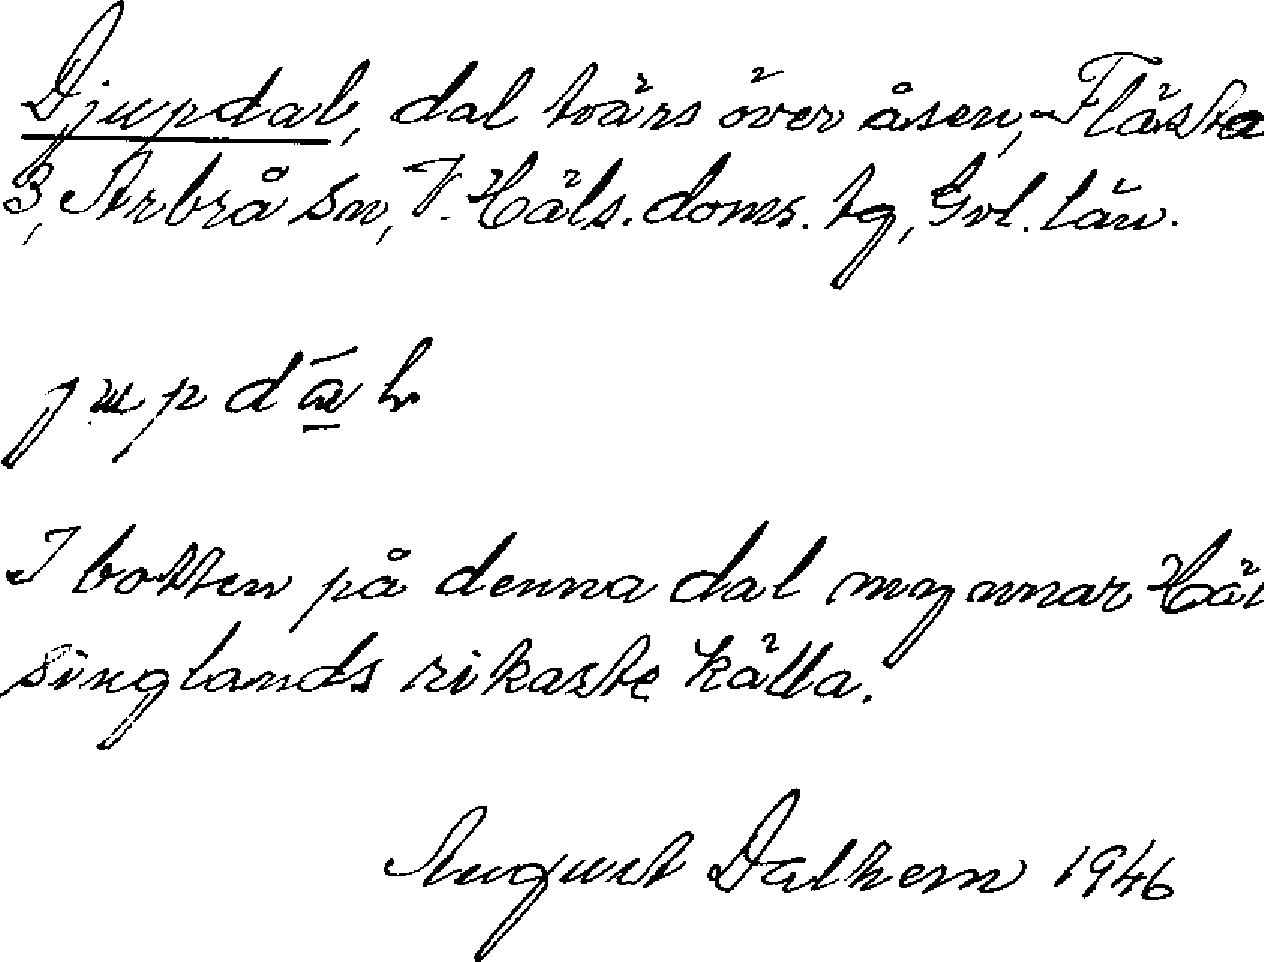 Djupdal, dal tvärs över åsen, Flästa
3, Arbrå sn, V. Häls. doms. tg, Gvl. län.
jupdāl
I botten på denna dal mynnar Häl
singlands rikaste källa.
August Dalhem 1946